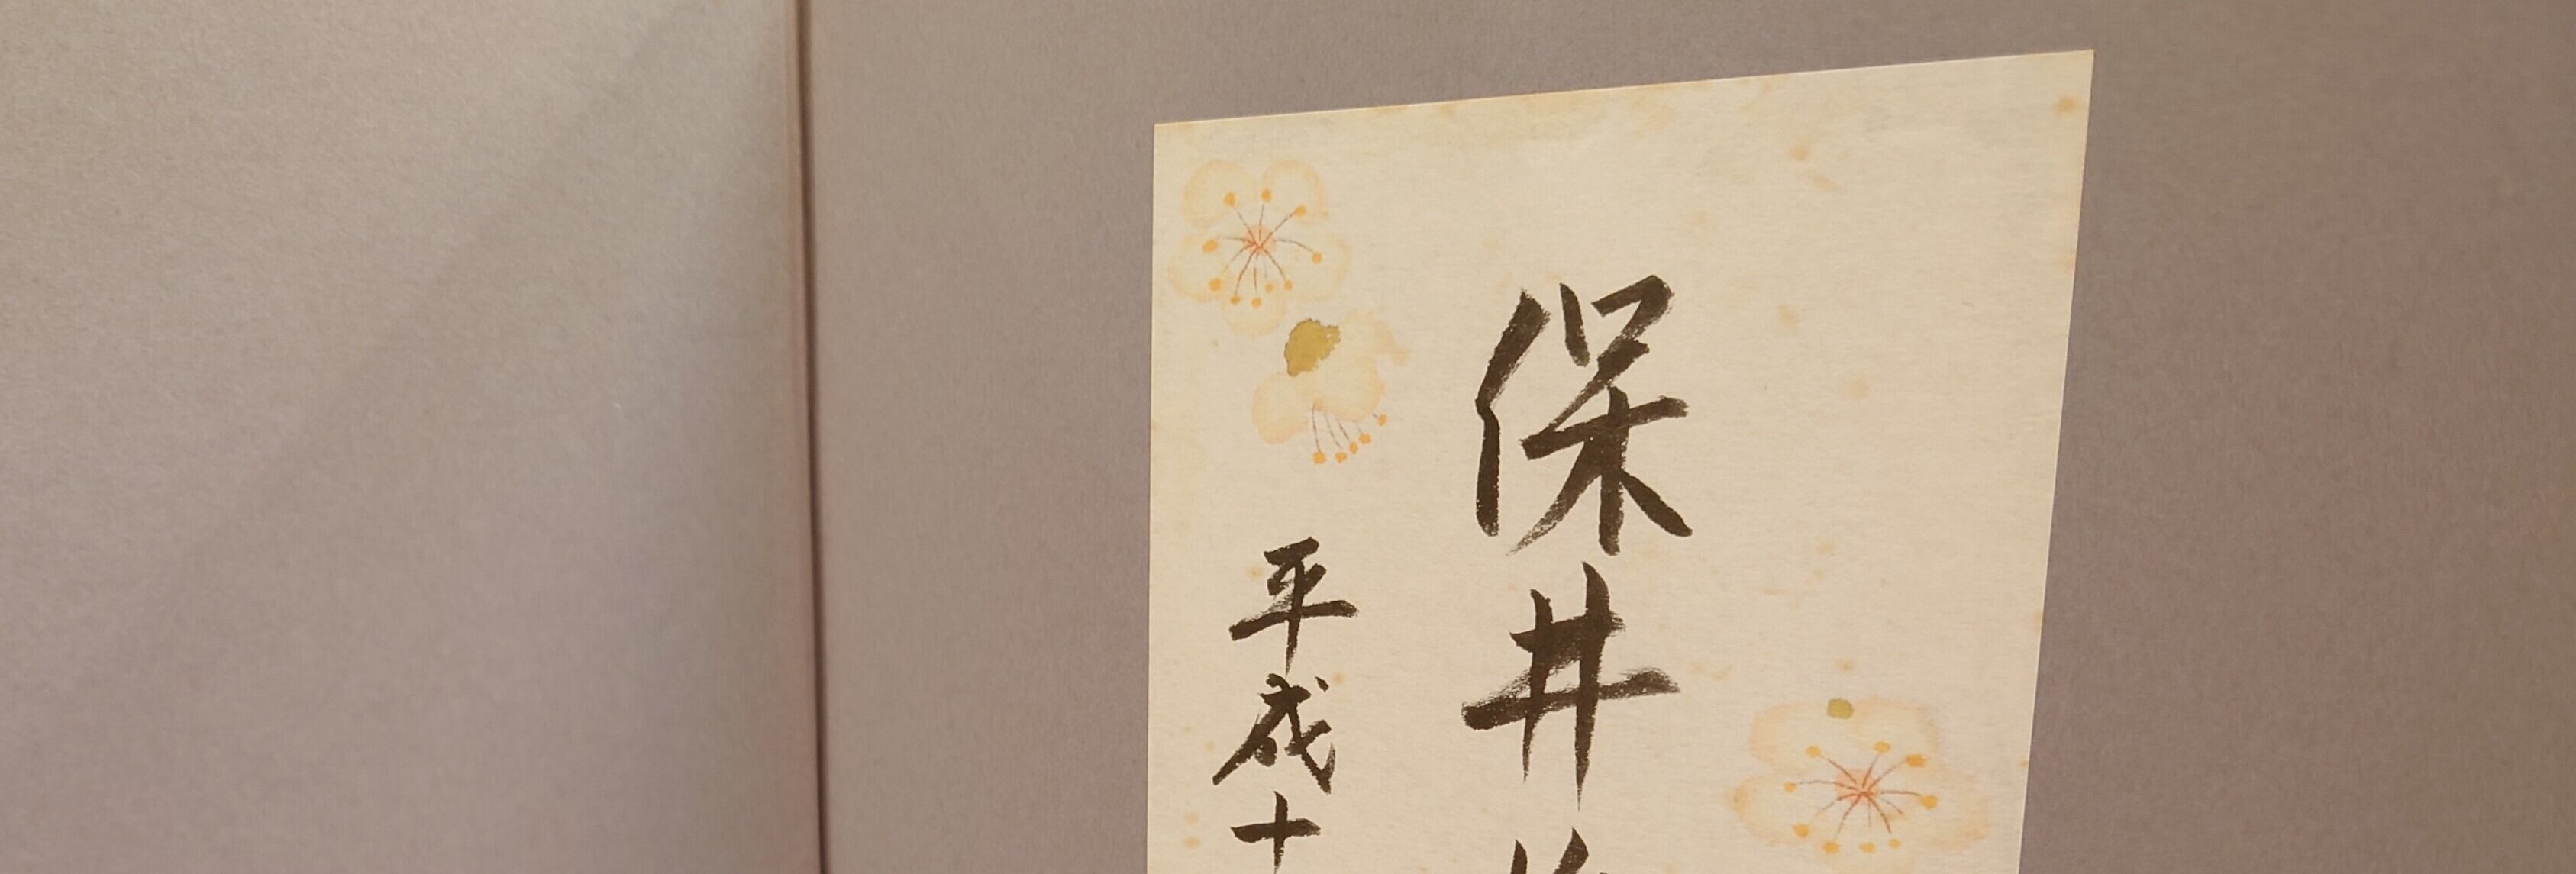 保井
平成十